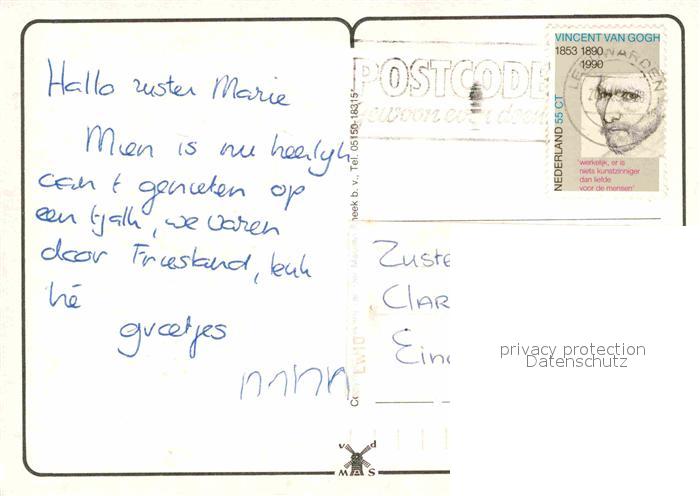 Hallo zuster Marie
Mien is nu heerlijk
aan 't genieten op
een tjalk, we varen
door Friesland, leuk
hè
groetjes
POSTCODE
gewoon even doen
LEEUWARDEN
VINCENT VAN GOGH
1853 1890
1990
NEDERLAND 55 CT
'werkelijk, er is
niets kunstzinniger
dan liefde
voor de mensen'
Tel. 05150-18315*
Zuste
CLAR
Ein
privacy protection
Datenschutz
v d
MAS